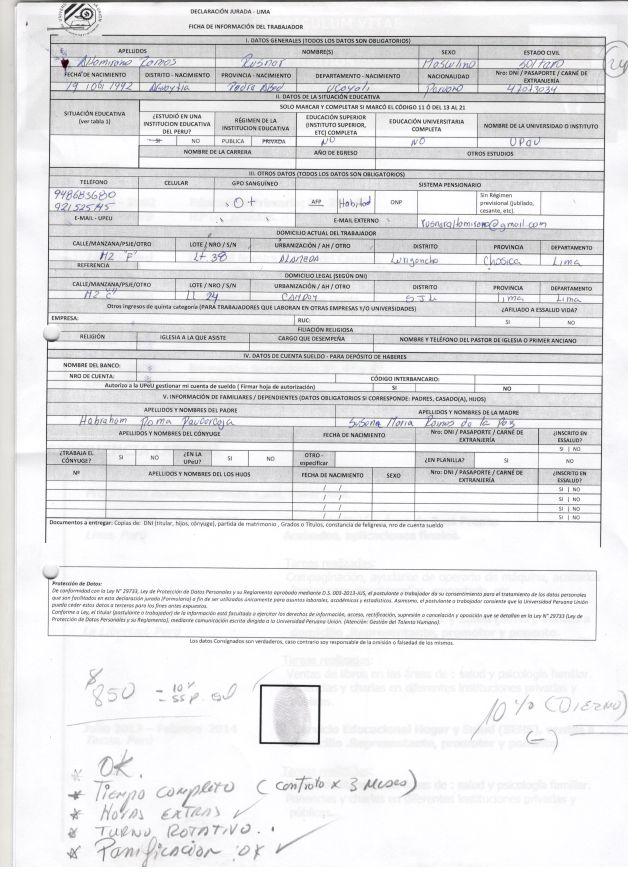 DECLARACIÓN JURADA - LIMA
FICHA DE INFORMACIÓN DEL TRABAJADOR
I. DATOS GENERALES (TODOS LOS DATOS SON OBLIGATORIOS)
APELLIDOS NOMBRE(S) SEXO ESTADO CIVIL
Altamirano Ramos Rusnor Masculino soltero
FECHA DE NACIMIENTO DISTRITO - NACIMIENTO PROVINCIA - NACIMIENTO DEPARTAMENTO - NACIMIENTO NACIONALIDAD Nro: DNI / PASAPORTE / CARNÉ DE EXTRANJERÍA
1992 Padre Abad Ucayali Peruano 47073034
II. DATOS DE LA SITUACIÓN EDUCATIVA
SOLO MARCAR Y COMPLETAR SI MARCÓ EL CÓDIGO 11 Ó DEL 13 AL 21
SITUACIÓN EDUCATIVA (ver tabla 1) ¿ESTUDIÓ EN UNA INSTITUCION EDUCATIVA DEL PERU? RÉGIMEN DE LA INSTITUCION EDUCATIVA EDUCACIÓN SUPERIOR (INSTITUTO SUPERIOR, ETC) COMPLETA EDUCACIÓN UNIVERSITARIA COMPLETA NOMBRE DE LA UNIVERSIDAD O INSTITUTO
NO PUBLICA PRIVADA NO NO
NOMBRE DE LA CARRERA AÑO DE EGRESO OTROS ESTUDIOS
III. OTROS DATOS (TODOS LOS DATOS SON OBLIGATORIOS)
TELÉFONO CELULAR GPO SANGUÍNEO SISTEMA PENSIONARIO
948683680
O+ AFP Habitad ONP Sin Régimen previsional (jubilado, cesante, etc).
E-MAIL - UPEU E-MAIL EXTERNO @gmail.com
DOMICIO ACTUAL DEL TRABAJADOR
CALLE/MANZANA/PSJE/OTRO LOTE / NRO / S/N URBANIZACIÓN / AH / OTRO DISTRITO PROVINCIA DEPARTAMENTO
MZ "F" Lt 38 ALAMEDA Lurigancho Chosica Lima
REFERENCIA
DOMICILIO LEGAL (SEGÚN DNI)
CALLE/MANZANA/PSJE/OTRO LOTE / NRO / S/N URBANIZACIÓN / AH / OTRO DISTRITO PROVINCIA DEPARTAMENTO
24 CAMPOY SJL Lima Lima
Otros ingresos de quinta categoría (PARA TRABAJADORES QUE LABORAN EN OTRAS EMPRESAS Y/O UNIVERSIDADES) ¿AFILIADO A ESSALUD VIDA?
EMPRESA: RUC: SI NO
FILIACIÓN RELIGIOSA
RELIGIÓN IGLESIA A LA QUE ASISTE CARGO QUE DESEMPEÑA NOMBRE Y TELÉFONO DEL PASTOR DE IGLESIA O PRIMER ANCIANO
IV. DATOS DE CUENTA SUELDO - PARA DEPÓSITO DE HABERES
NOMBRE DEL BANCO:
NRO DE CUENTA: CÓDIGO INTERBANCARIO:
Autorizo a la UPeU gestionar mi cuenta de sueldo ( Firmar hoja de autorización) SI NO
V. INFORMACIÓN DE FAMILIARES / DEPENDIENTES (DATOS OBLIGATORIOS SI CORRESPONDE: PADRES, CASADO(A), HIJOS)
APELLIDOS Y NOMBRES DEL PADRE APELLIDOS Y NOMBRES DE LA MADRE
Habraham Maria Ramos de la Paz
APELLIDOS Y NOMBRES DEL CÓNYUGE FECHA DE NACIMIENTO Nro: DNI / PASAPORTE / CARNÉ DE EXTRANJERÍA ¿INSCRITO EN ESSALUD?
SI NO
¿TRABAJA EL CÓNYUGE? SI NO ¿EN LA UPeU? SI NO OTRO - especificar ¿EN PLANILLA? SI NO
Nº APELLIDOS Y NOMBRES DEL LOS HIJOS FECHA DE NACIMIENTO SEXO Nro: DNI / PASAPORTE / CARNÉ DE EXTRANJERÍA ¿INSCRITO EN ESSALUD?
/ / SI NO
/ / SI NO
/ / SI NO
/ / SI NO
Documentos a entregar: Copias de: DNI (titular, hijos, cónyuge), partida de matrimonio , Grados o Títulos, constancia de feligresía, nro de cuenta sueldo
Protección de Datos:
De conformidad con la Ley N° 29733, Ley de Protección de Datos Personales y su Reglamento aprobado mediante D.S. 003-2013-JUS, el postulante o trabajador da su consentimiento para el tratamiento de los datos personales
que son facilitados en esta declaración jurada (Formulario) a fin de ser utilizados únicamente para asuntos laborales, académicos y estadísticos. Asimismo, el postulante o trabajador consiente que la Universidad Peruana Unión
pueda ceder estos datos a terceros para los fines antes expuestos.
Conforme a Ley, el titular (postulante o trabajador) de la información está facultado a ejercitar los derechos de información, acceso, rectificación, supresión o cancelación y oposición que se detallan en la Ley N° 29733 (Ley de
Protección de Datos Personales y su Reglamento), mediante comunicación escrita dirigida a la Universidad Peruana Unión. (Atención: Gestión del Talento Humano).
Los datos Consignados son verdaderos, caso contrario soy responsable de la omisión o falsedad de los mismos.
850 = 10%
10% (DIEZMO)
(-)
* OK.
* TIEMPO COMPLETO (contrato x 3 Meses)
* HORAS EXTRAS ✓
* TURNO ROTATIVO . .
* Panificacion OK ✓